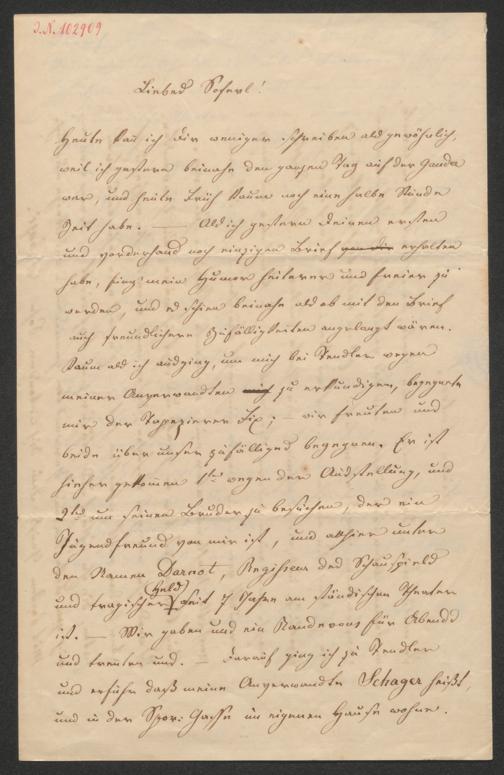 J.N. 102909
Liebes Soferl!
Heute kan ich dir weniger schreiben als gewöhnlich,
weil ich gestern beinahe den ganzen Tag auf der
war, und heute Früh kaum noch eine halbe Stunde
Zeit habe. — Als ich gestern deinen ersten
und vorderhand noch einzigen Brief von dir erhalten
habe, fing mein Humor heiterer und freier zu
werden, und es schien beinahe als ob mit dem Brief
auch freundlichere Zufälligkeiten angelangt wären.
Kaum als ich ausging, um mich bei Tendler wegen
meiner Anverwandten zu erkundigen, begegnete
mir der Tapezierer Fix; — wir freuten uns
beide über unser zufälliges begegnen. Er ist
hieher gekommen 1tens wegen der Ausstellung, und
2tens um seinen Bruder zu besuchen, der ein
Jugendfreund von mir ist, und allhier unter
den Namen Darnot, Regisseur des Schauspiels
und tragischer Held seit 7 Jahren am ständischen Theater
ist. — Wir gaben uns ein Randevous für Abends
und trenten uns. — Darauf ging ich zu Tendler
und erfuhr daß meine Anverwandte Schager heißt,
und in der Spor: Gasse im eigenen Hause wohne.